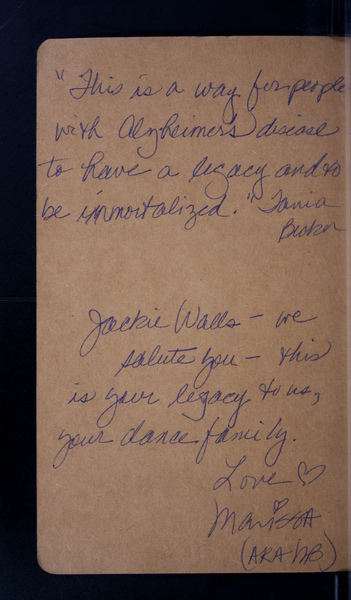 "This is a way for people
with Alzheimer's disease
to have a legacy and to
be immortalized." Tania
Jackie Walls - we
salute you - this
is your legacy to us,
your dance family.
Love ♡
Marissa
(AKA MB)